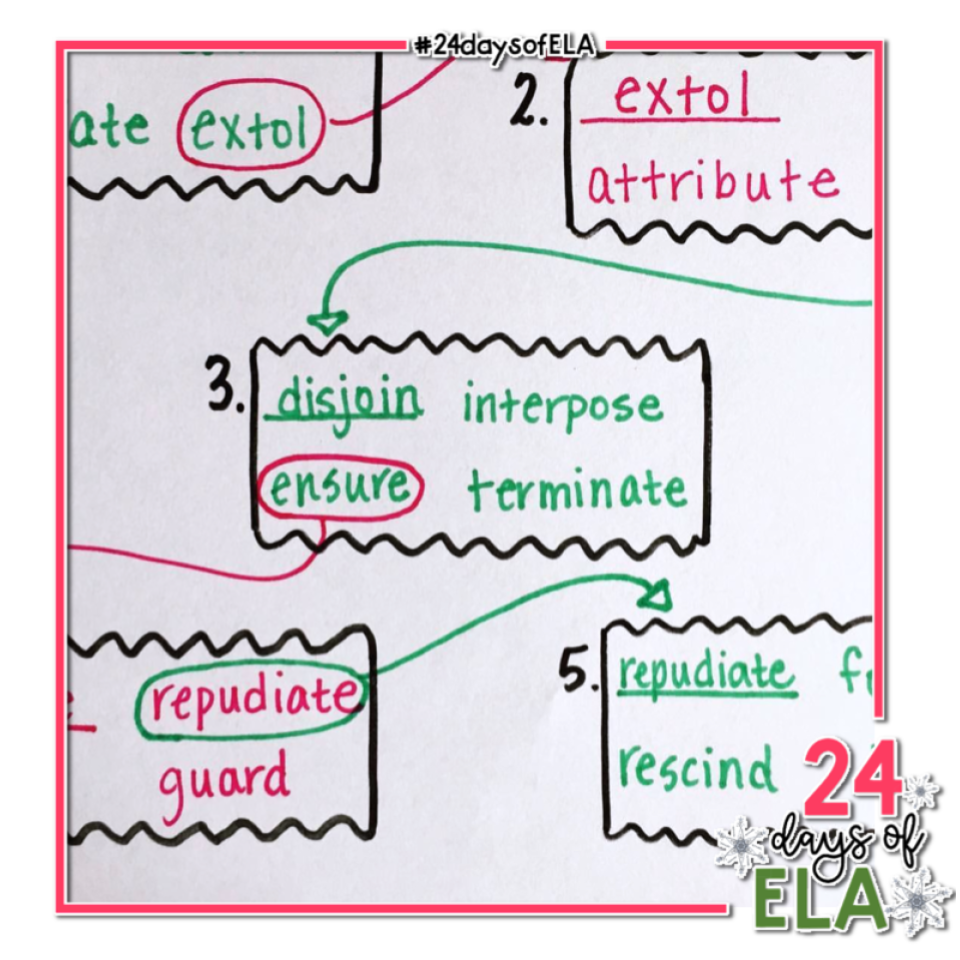 #24daysofELA
ate extol
2. extol
attribute
3. disjoin interpose
ensure terminate
repudiate
guard
5. repudiate
rescind
24
days of
ELA